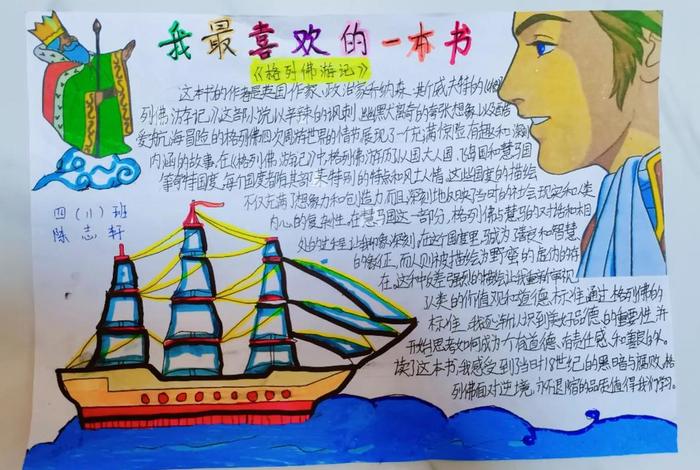 我最喜欢的一本书
《格列佛游记》
这本书的作者是英国作家、政治家乔纳森·斯威夫特的《格
列佛游记》这部小说以辛辣的讽刺、幽默离奇的夸张想象以及酷
爱航海冒险的格列佛四次周游世界的情节展现了一个充满惊险有趣和深刻
内涵的故事，在《格列佛游记》中，格列佛游历了小人国大人国、飞岛国和慧马国
等奇特国度，每个国度都有其独特的特点和风土人情，这些国度的描绘
不仅充满了想象力和创造力，而且深刻地反映了当时的社会现实和人类
内心的复杂性。在慧马国这一部分，格列佛与慧马的对话和相
处的过程让我印象深刻，在这个国度里，马成为了善良和智慧
的象征，而人则被描绘为野蛮的
在，这种反差强烈的描绘让我重新审视
人类的价值观和道德标准，通过格列佛的
标准，我逐渐认识到美好品德的重要性，并
开始思考如何成为一个有道德、有责任感、和善良的人。
读了这本书，我感受到了当时18世纪的黑暗与腐败，格
列佛面对逆境，永不退缩的品质值得我们学习。
四（11）班
陈志轩